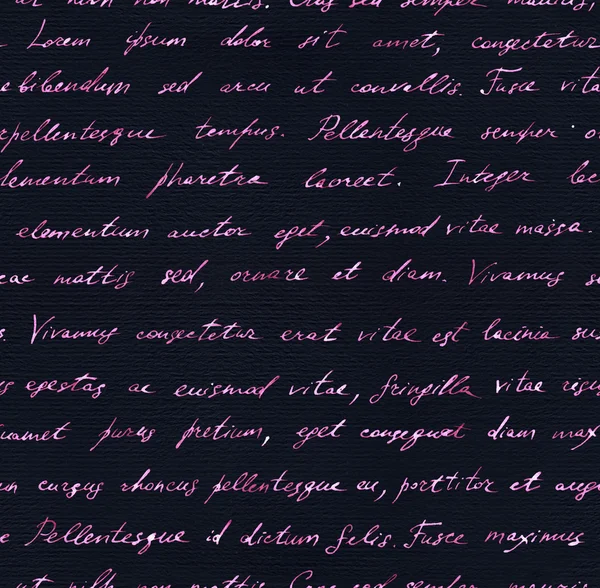 non mattis. Cras sed semper mauris,
Lorem ipsum dolor sit amet, consectetur
bibendum sed arcu ut convallis. Fusce vita
rpellentesque tempus. Pellentesque semper o
lementum pharetra laoreet. Integer lac
elementum auctor eget, euismod vitae massa.
cac mattis sed, ornare et diam. Vivamus s
s. Vivamus consectetur erat vitae est lacinia sus
us egestas ac euismod vitae, fringilla vitae risu
uamet purus pretium, eget consequat diam max
un cursus rhoncus pellentesque eu, porttitor et augu
e Pellentesque id dictum felis. Fusce maximus
ut nibh non mattis. Cras sed semper mauris